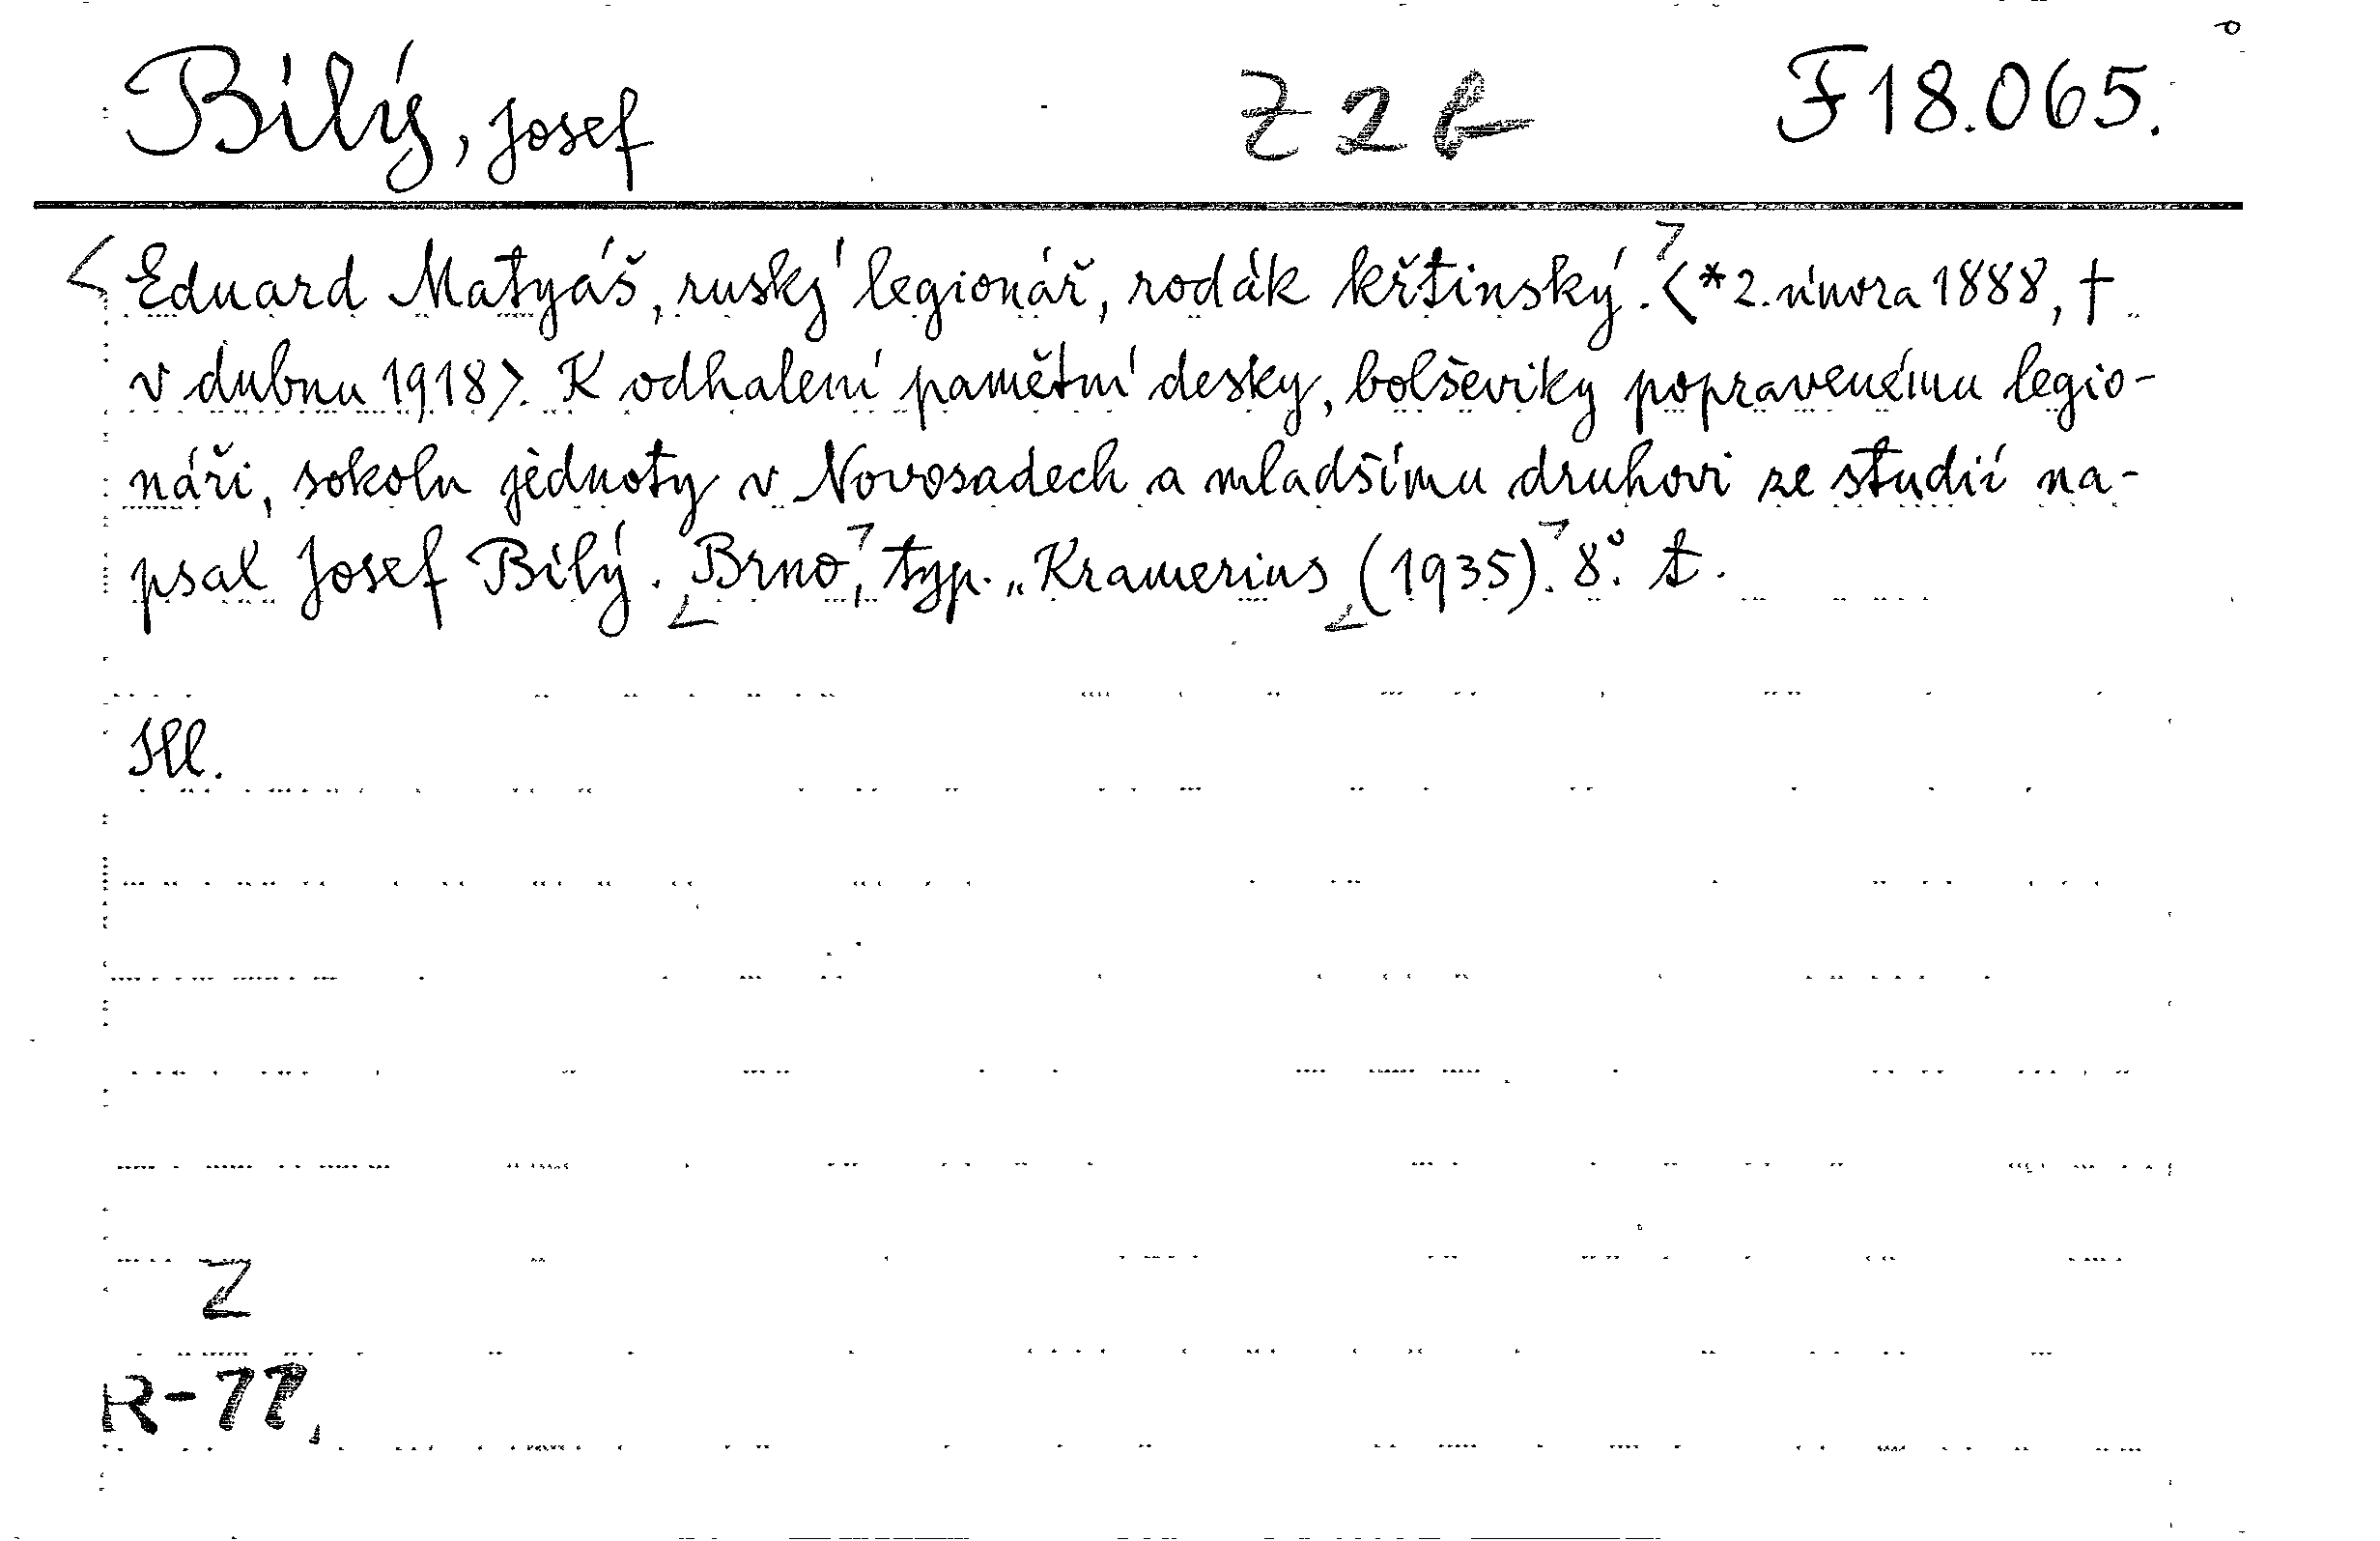 Bílý, Josef Z 2 b F 18.065.
Eduard Matyáš, ruský legionář, rodák křtinský. <*2. února 1888, †
v dubnu 1918>. K odhalení pamětní desky, bolševiky popravenému legio-
náři, sokolu jednoty v Novosadech a mladšímu druhovi ze studií na-
psal Josef Bílý. Brno, typ. „Kramerius (1935). 8°. t.
Ill.
Z
R-77.